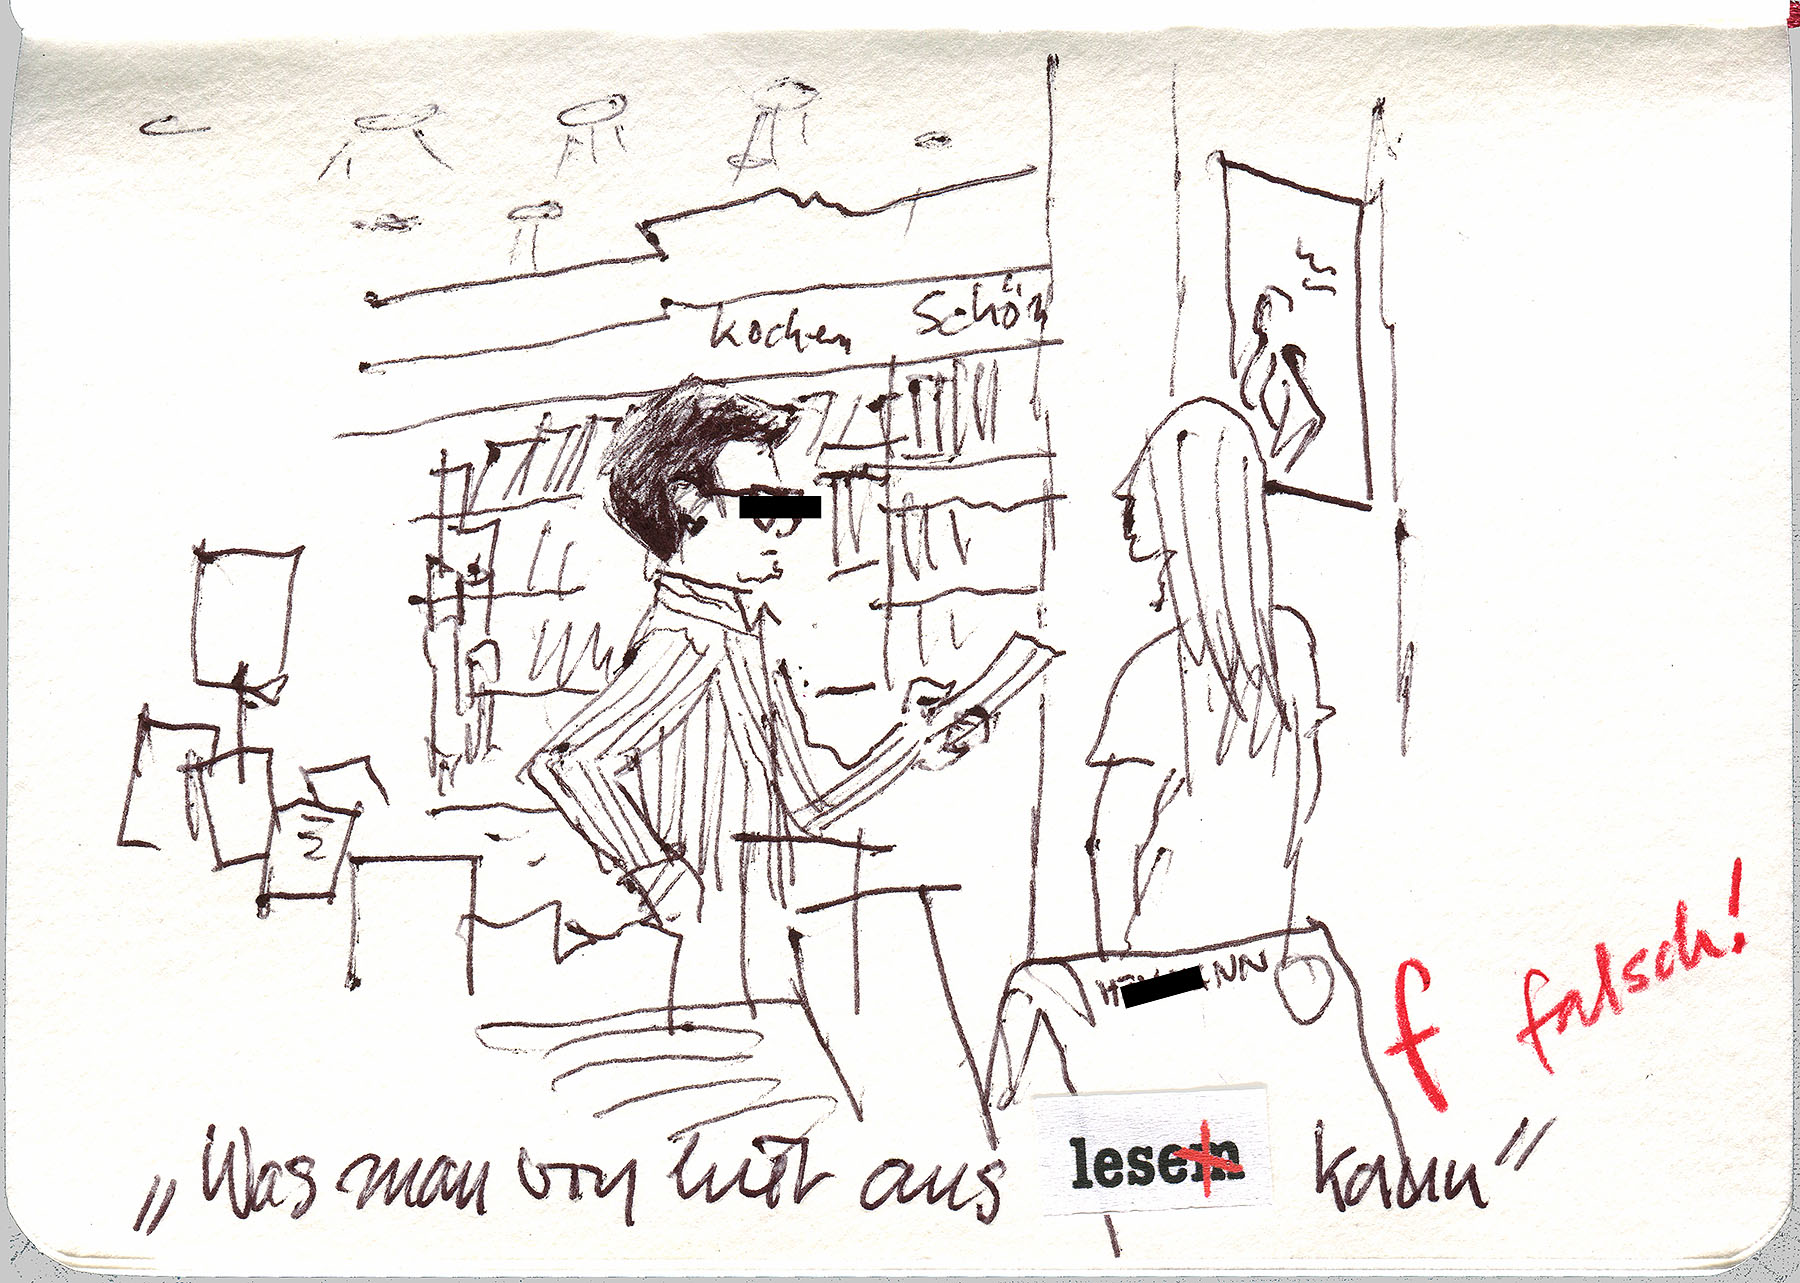 kochen Schön
falsch!
f
„Was man von hier aus lesem kann“